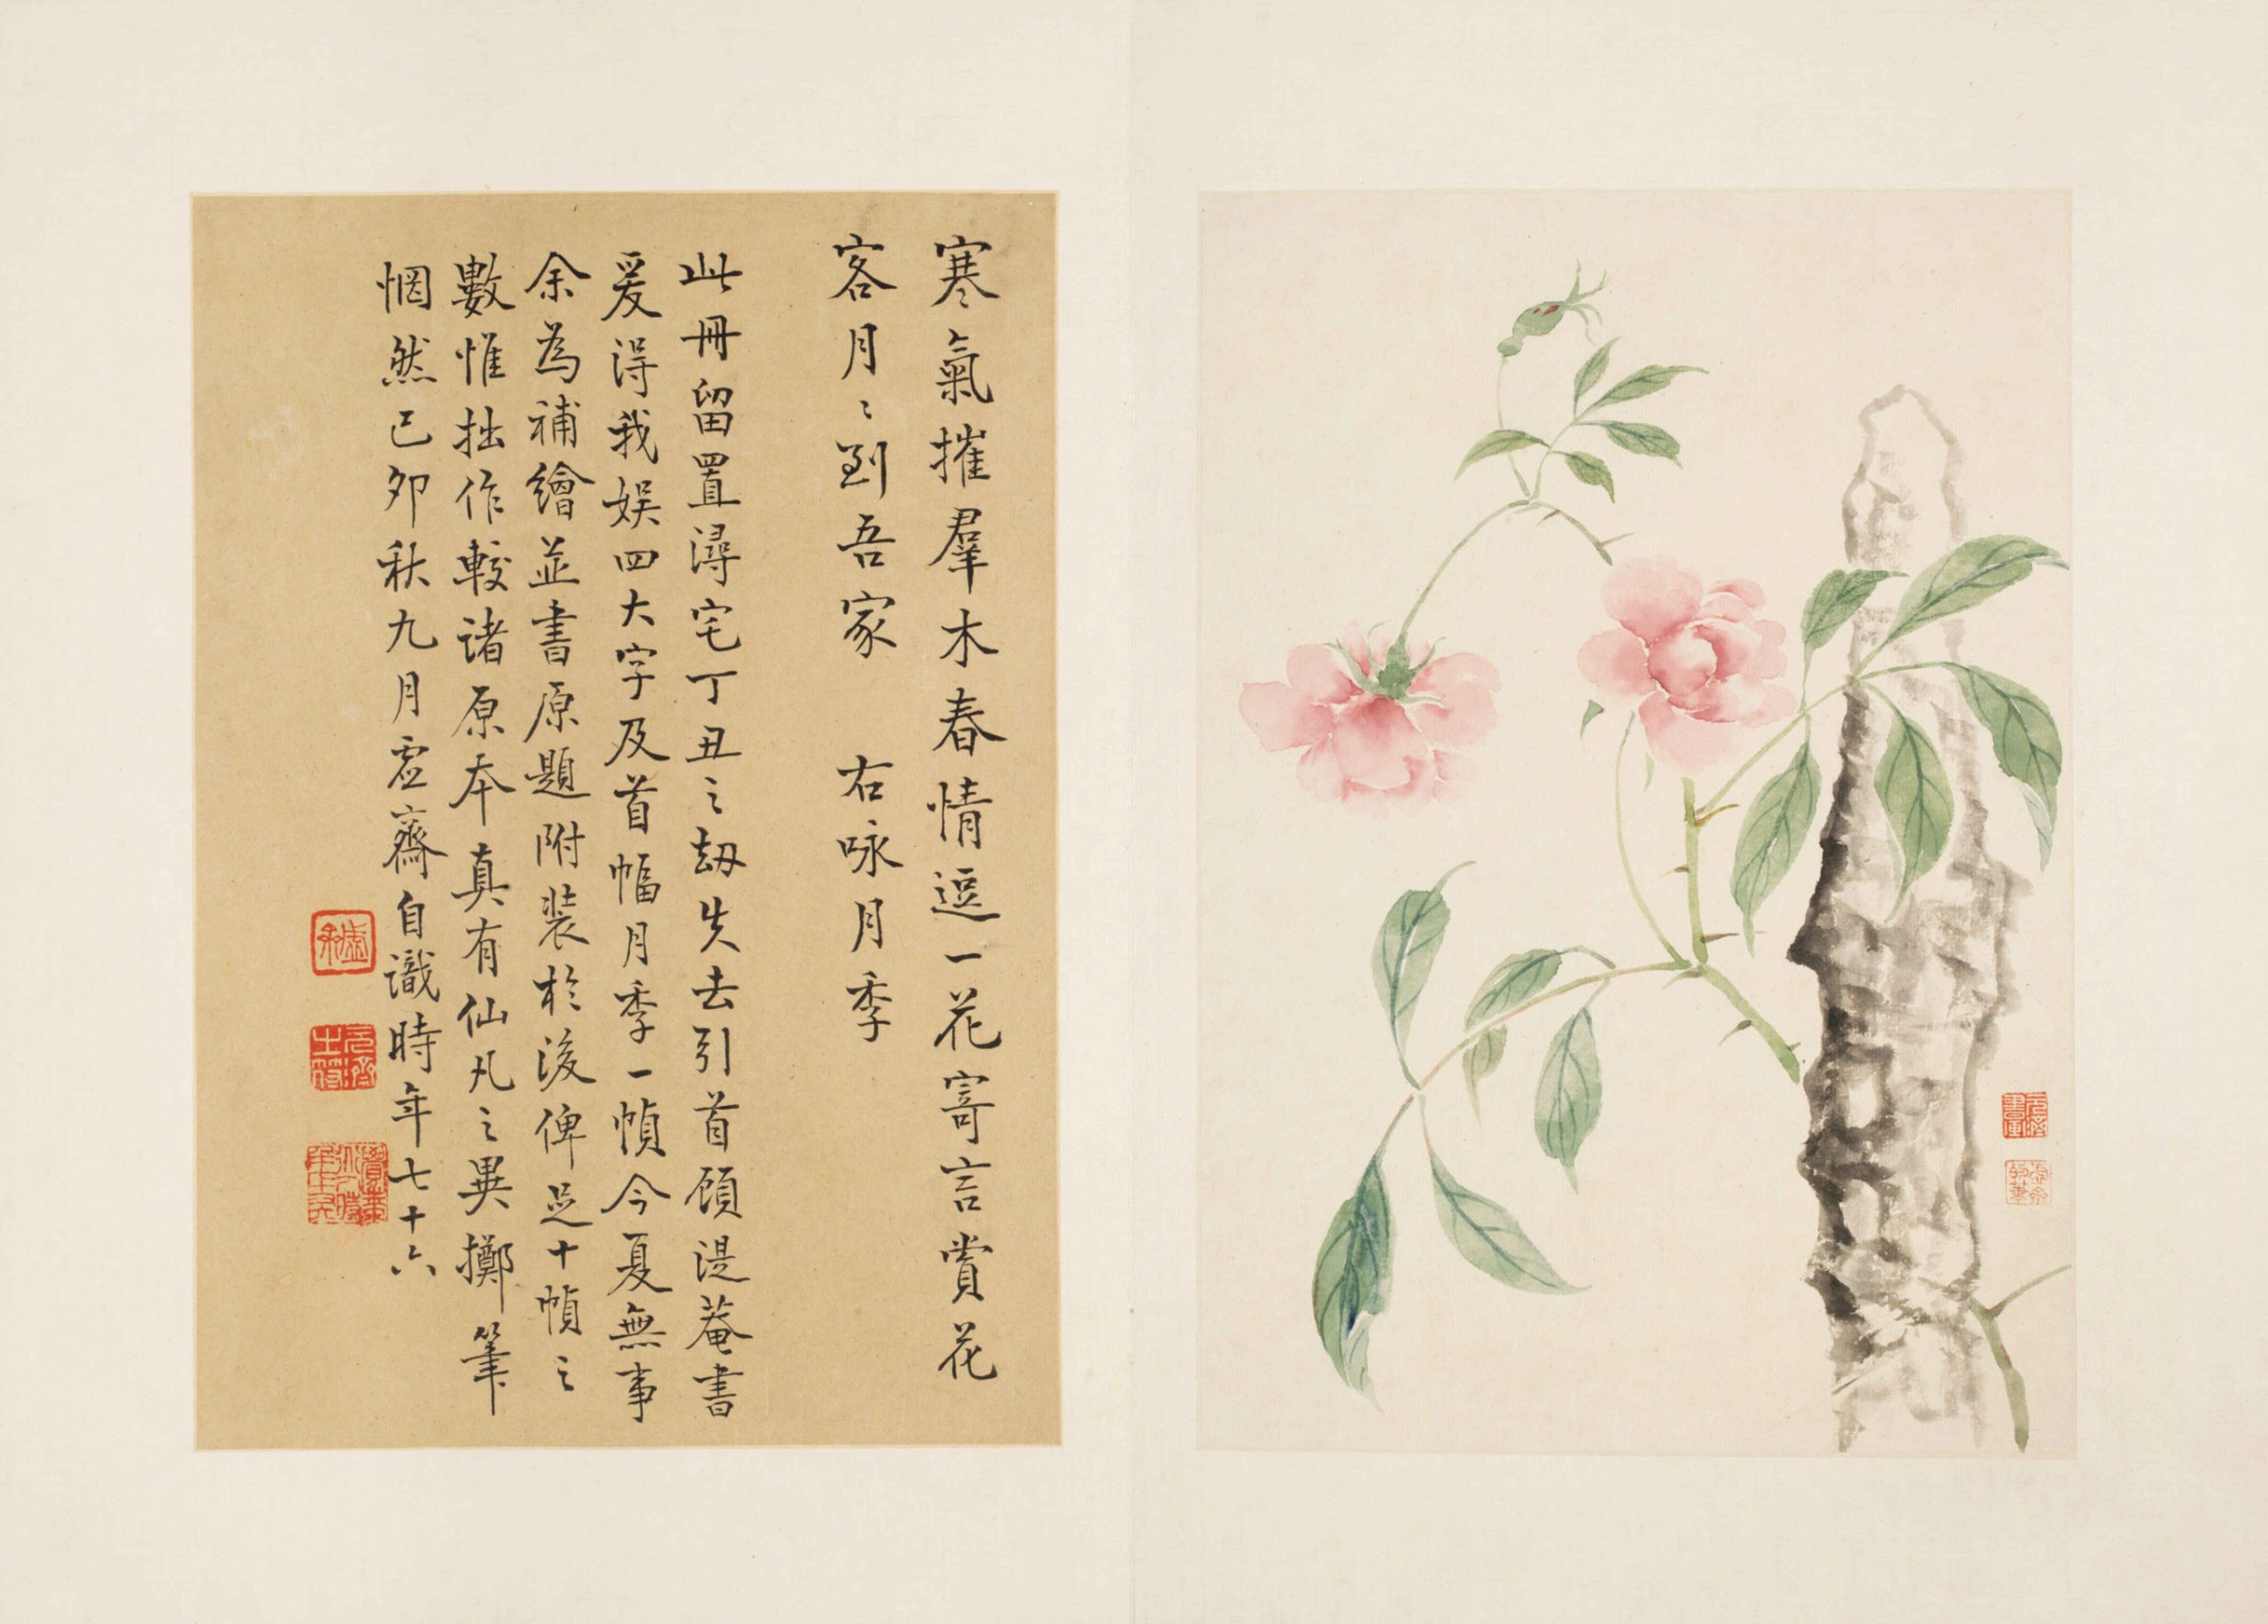 寒氣摧羣木春情逗一花寄言賞花
客月〻到吾家　右咏月季
此冊留置潯宅丁丑之劫失去引首顧湜菴書
爰得我娛四大字及首幅月季一幀今夏無事
余為補繪並書原題附裝於後俾足十幀之
數惟拙作較諸原本真有仙凡之異擲筆
惘然己卯秋九月虛齋自識時年七十六